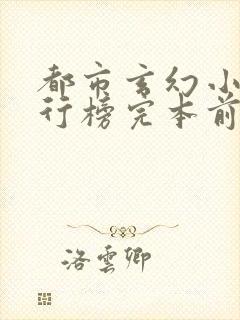 都市玄幻小
行榜完本前
洛雲卿